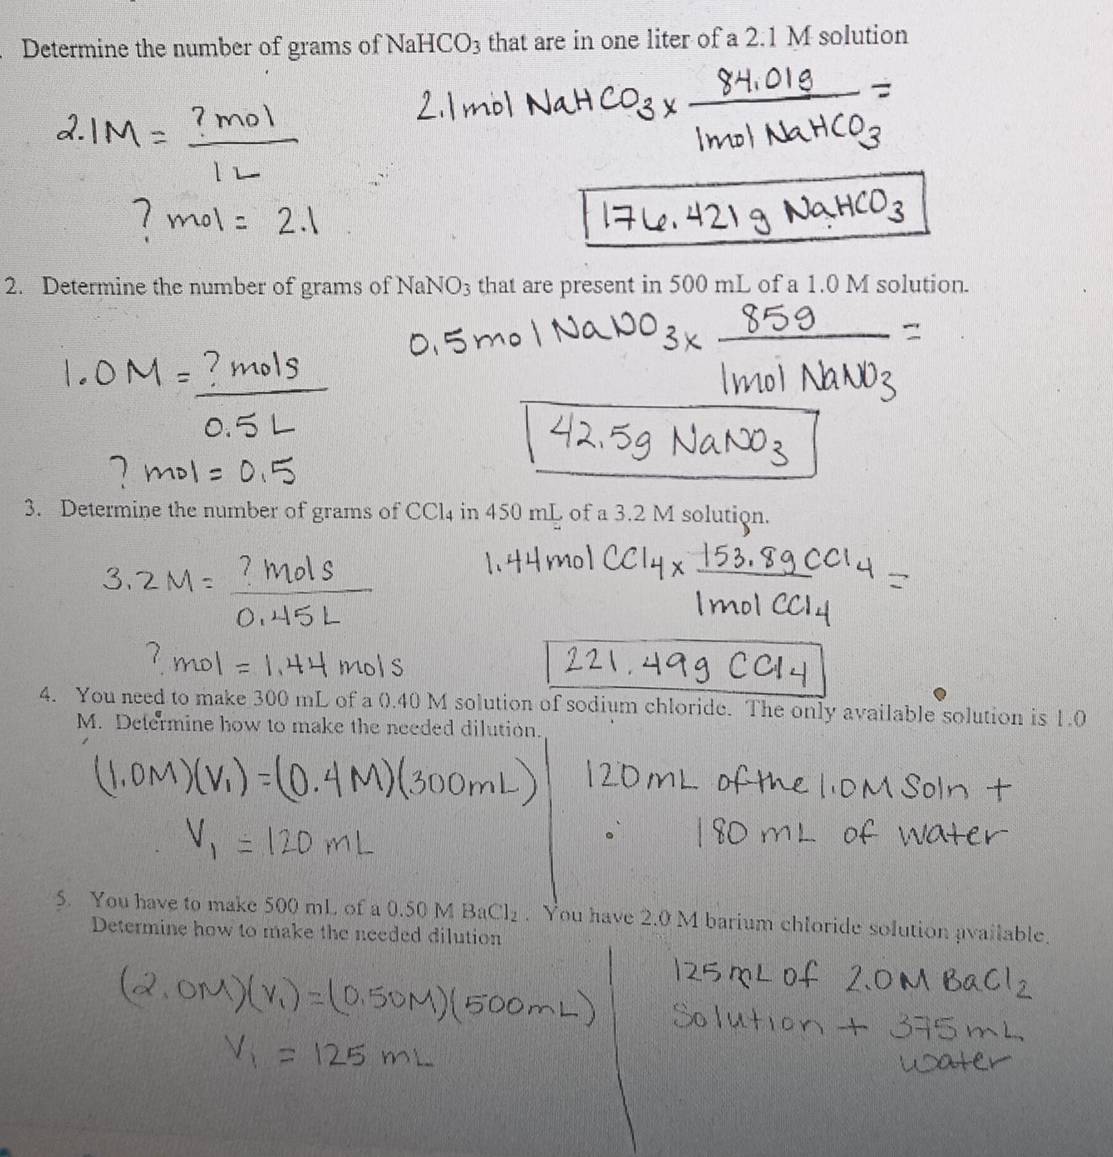 Determine the number of grams of NaHCO₃ that are in one liter of a 2.1 M solution
2.1M = ? mol / 1L
2.1mol NaHCO₃ x 84.01g / 1mol NaHCO₃ =
? mol = 2.1
176.421g NaHCO₃
2. Determine the number of grams of NaNO₃ that are present in 500 mL of a 1.0 M solution.
1.0M = ? mols / 0.5L
0.5mol NaNO₃ x 85g / 1mol NaNO₃ =
? mol = 0.5
42.5g NaNO₃
3. Determine the number of grams of CCl₄ in 450 mL of a 3.2 M solution.
3.2M = ? mols / 0.45L
1.44mol CCl₄ x 153.8g CCl₄ / 1mol CCl₄ =
? mol = 1.44 mols
221.49g CCl₄
4. You need to make 300 mL of a 0.40 M solution of sodium chloride. The only available solution is 1.0
M. Determine how to make the needed dilution.
(1.0M)(V₁) = (0.4M)(300mL)
V₁ = 120 mL
120mL of the 1.0M Soln +
180 mL of water
5. You have to make 500 mL of a 0.50 M BaCl₂. You have 2.0 M barium chloride solution available.
Determine how to make the needed dilution
(2.0M)(V₁) = (0.50M)(500mL)
V₁ = 125 mL
125mL of 2.0M BaCl₂
Solution + 375mL
water